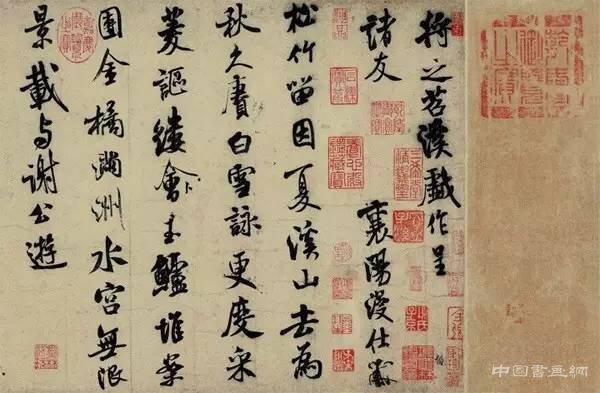 將之苕溪戲作呈
諸友
襄陽漫仕黻
松竹留因夏溪山去為
秋久賡白雪詠更度采
菱謳縷會玉鱸堆案
團金橘滿洲水宮無限
景載与謝公遊
中国書画網